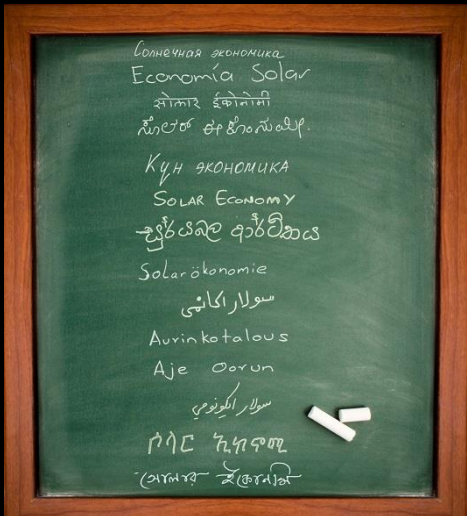 Солнечная экономика
Economía Solar
सोलार ईकोनोमी
ಸೋಲಾರ್ ಈಕೊನಮೀ.
Күн экономика
SOLAR ECONOMY
සූර්යබල ආර්ථිකය
Solarökonomie
سولار اکانمی
Aurinkotalous
Aje Oorun
سولار اکونومي
ሶላር ኢኮኖሚ
সোলার ইকোনমি